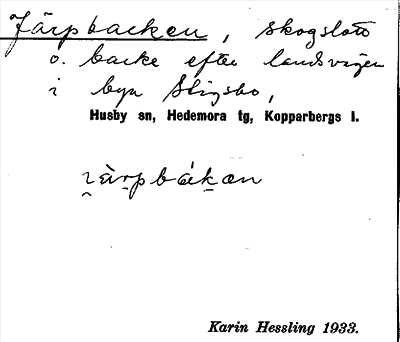 Järpbacken, skogslott
o. backe efter landsvägen
i byn Stigsbo,
Husby sn, Hedemora tg, Kopparbergs l.
i̯ä̀r̥pbák̠ən
Karin Hessling 1933.